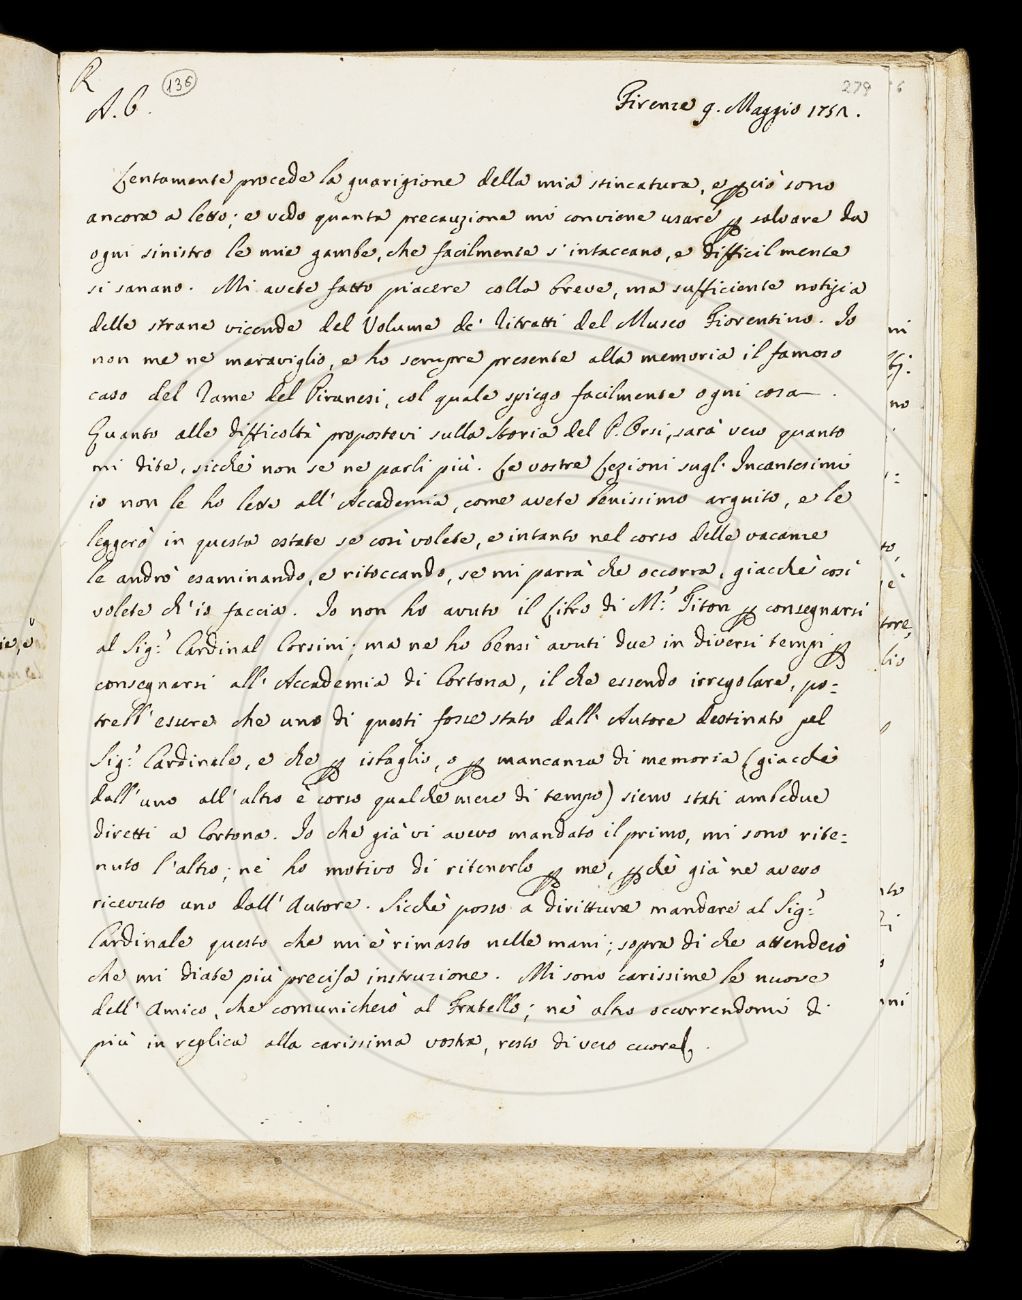 R
A. C.
136
279
Firenze 9. Maggio 1751.
Lentamente procede la guarigione della mia stincatura, e p ciò sono
ancora a letto; e vedo quanta precauzione mi conviene usare p salvare da
ogni sinistro le mie gambe, che facilmente s' intaccano, e difficilmente
si sanano. Mi avete fatto piacere colla breve, ma sufficiente notizia
delle strane vicende del Volume de' Ritratti del Museo Fiorentino. Io
non me ne maraviglio, e ho sempre presente alla memoria il famoso
caso del Rame del Piranesi, col quale spiego facilmente ogni cosa.
Quanto alle difficoltà propostovi sulla Storia del P. Orsi, sarà vero quanto
mi dite, sicchè non se ne parli più. Le vostre Lezioni sugl' Incantesimi
io non le ho lette all' Accademia, come avete benissimo arguito, e le
leggerò in questa estate se così volete, e intanto nel corso delle vacanze
le andrò esaminando, e ritoccando, se mi parrà che occorra, giacchè così
volete ch' io faccia. Io non ho avuto il Libro di Mr. Titon p consegnarsi
al Sigr. Cardinal Corsini; ma ne ho bensì avuti due in diversi tempi p
consegnarsi all' Accademia di Cortona, il che essendo irregolare, po=
trebb' essere che uno di questi fosse stato dall' Autore destinato pel
Sigr. Cardinale, e che p isbaglio, o p mancanza di memoria (giacchè
dall' uno all' altro è corso qualche mese di tempo) sieno stati ambedue
diretti a Cortona. Io che già vi avevo mandato il primo, mi sono rite=
nuto l'altro; nè ho motivo di ritenerlo p me, p chè già ne avevo
ricevuto uno dall' Autore. Sicchè posso a dirittura mandare al Sigr.
Cardinale questo che mi è rimasto nelle mani; sopra di che attenderò
che mi diate più precisa instruzione. Mi sono carissime le nuove
dell' Amico, che comunicherò al Fratello; nè altro occorrendomi di
più in replica alla carissima vostra, resto di vero cuore.